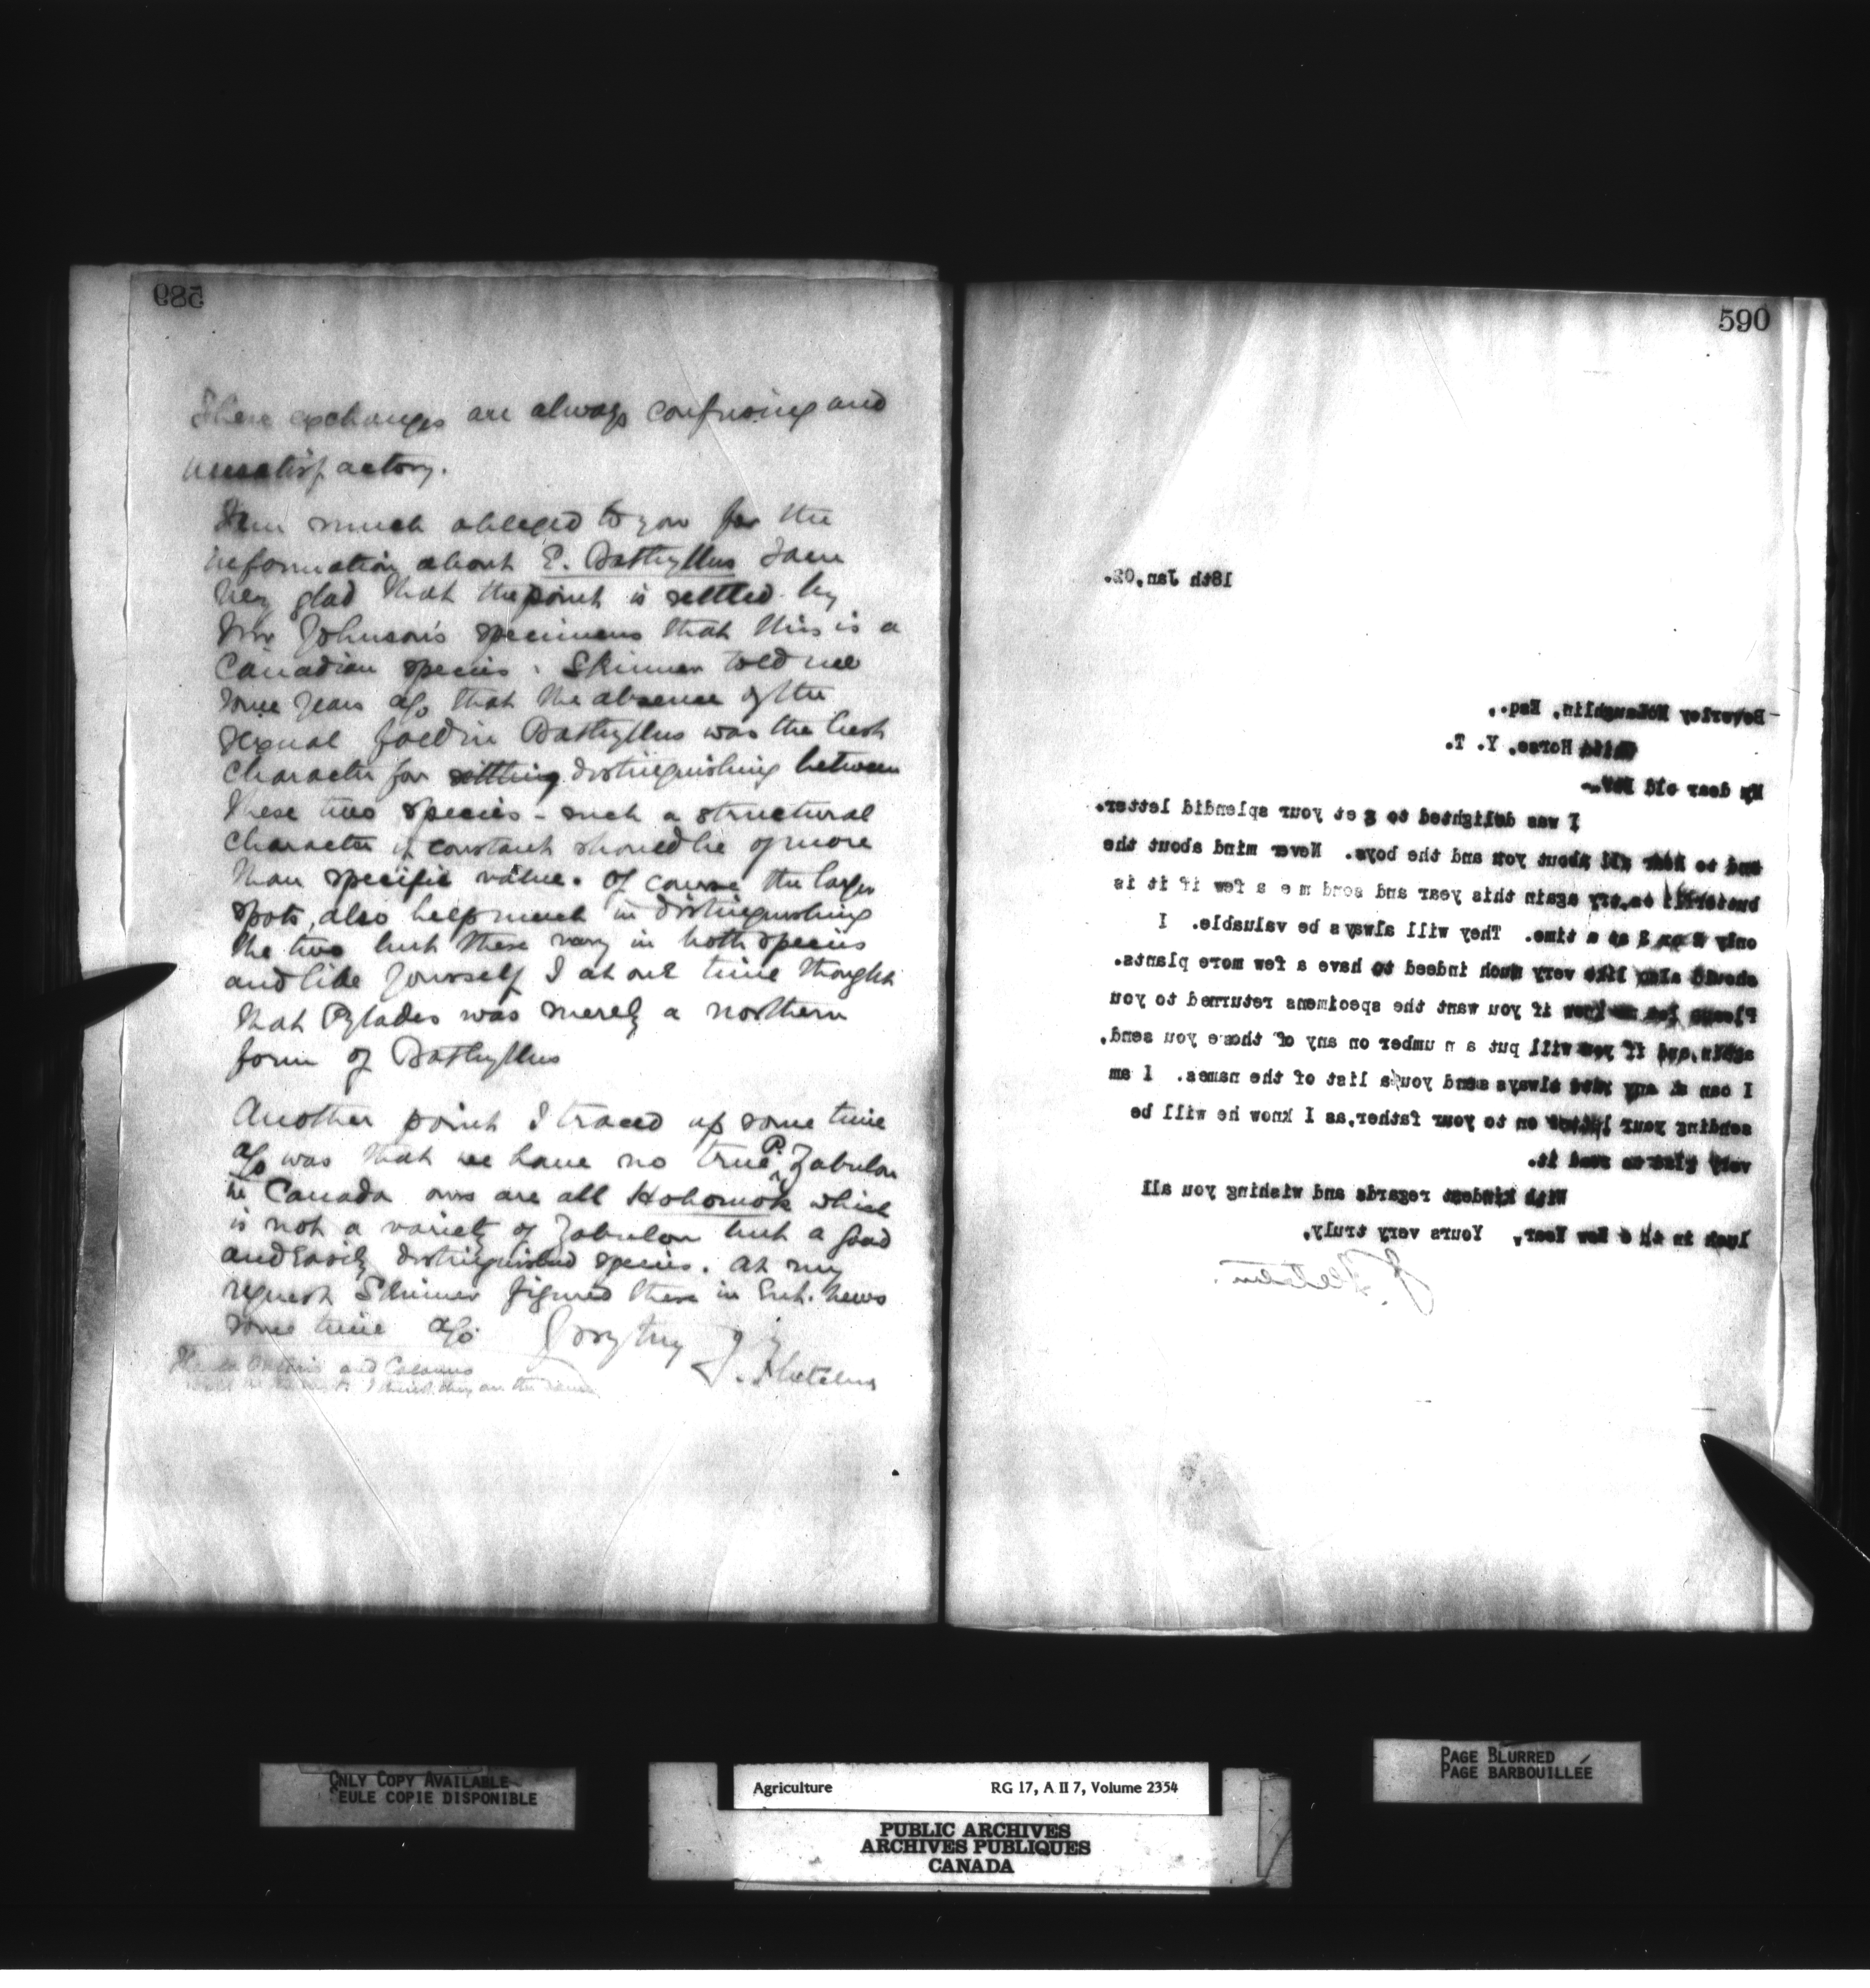 589
These exchanges are always confusing and
unsatisfactory.
I am much obliged to you for the
information about E. Bathyllus I am
very glad that the point is settled by
Mr Johnson's specimens that this is a
Canadian species. Skinner told me
some years ago that the absence of the
sexual fold in Bathyllus was the best
character for settling distinguishing between
these two species - such a structural
character if constant should be of more
than specific value. Of course the larger
spots, also help much in distinguishing
the two but these vary in both species
and like yourself I at one time thought
that Pylades was merely a northern
form of Bathyllus
Another point I traced up some time
ago was that we have no true P. Zabulon
in Canada ours are all Hobomok which
is not a variety of Zabulon but a good
and easily distinguished species. At my
request Skinner figured these in Ent. News
some time ago.
J. Fletcher
and Calanus
I think they are the same
590
18th Jan, 02.
Beverley McLaughlin, Esq.,
Horse, Y. T.
My dear old
I was delighted to get your splendid letter.
and to hear all about you and the boys. Never mind about the
try again this year and send me a few if it is
only 2 or 3 at a time. They will always be valuable. I
should also like very much indeed to have a few more plants.
Please let me know if you want the specimens returned to you
again, and if you will put a number on any of those you send,
I can at any time always send you a list of the names. I am
sending your letter on to your father, as I know he will be
very glad to read it.
With kindest regards and wishing you all
luck in the New Year, Yours very truly,
J. Fletcher.
ONLY COPY AVAILABLE
SEULE COPIE DISPONIBLE
Agriculture RG 17, A II 7, Volume 2354
PUBLIC ARCHIVES
ARCHIVES PUBLIQUES
CANADA
PAGE BLURRED
PAGE BARBOUILLÉE